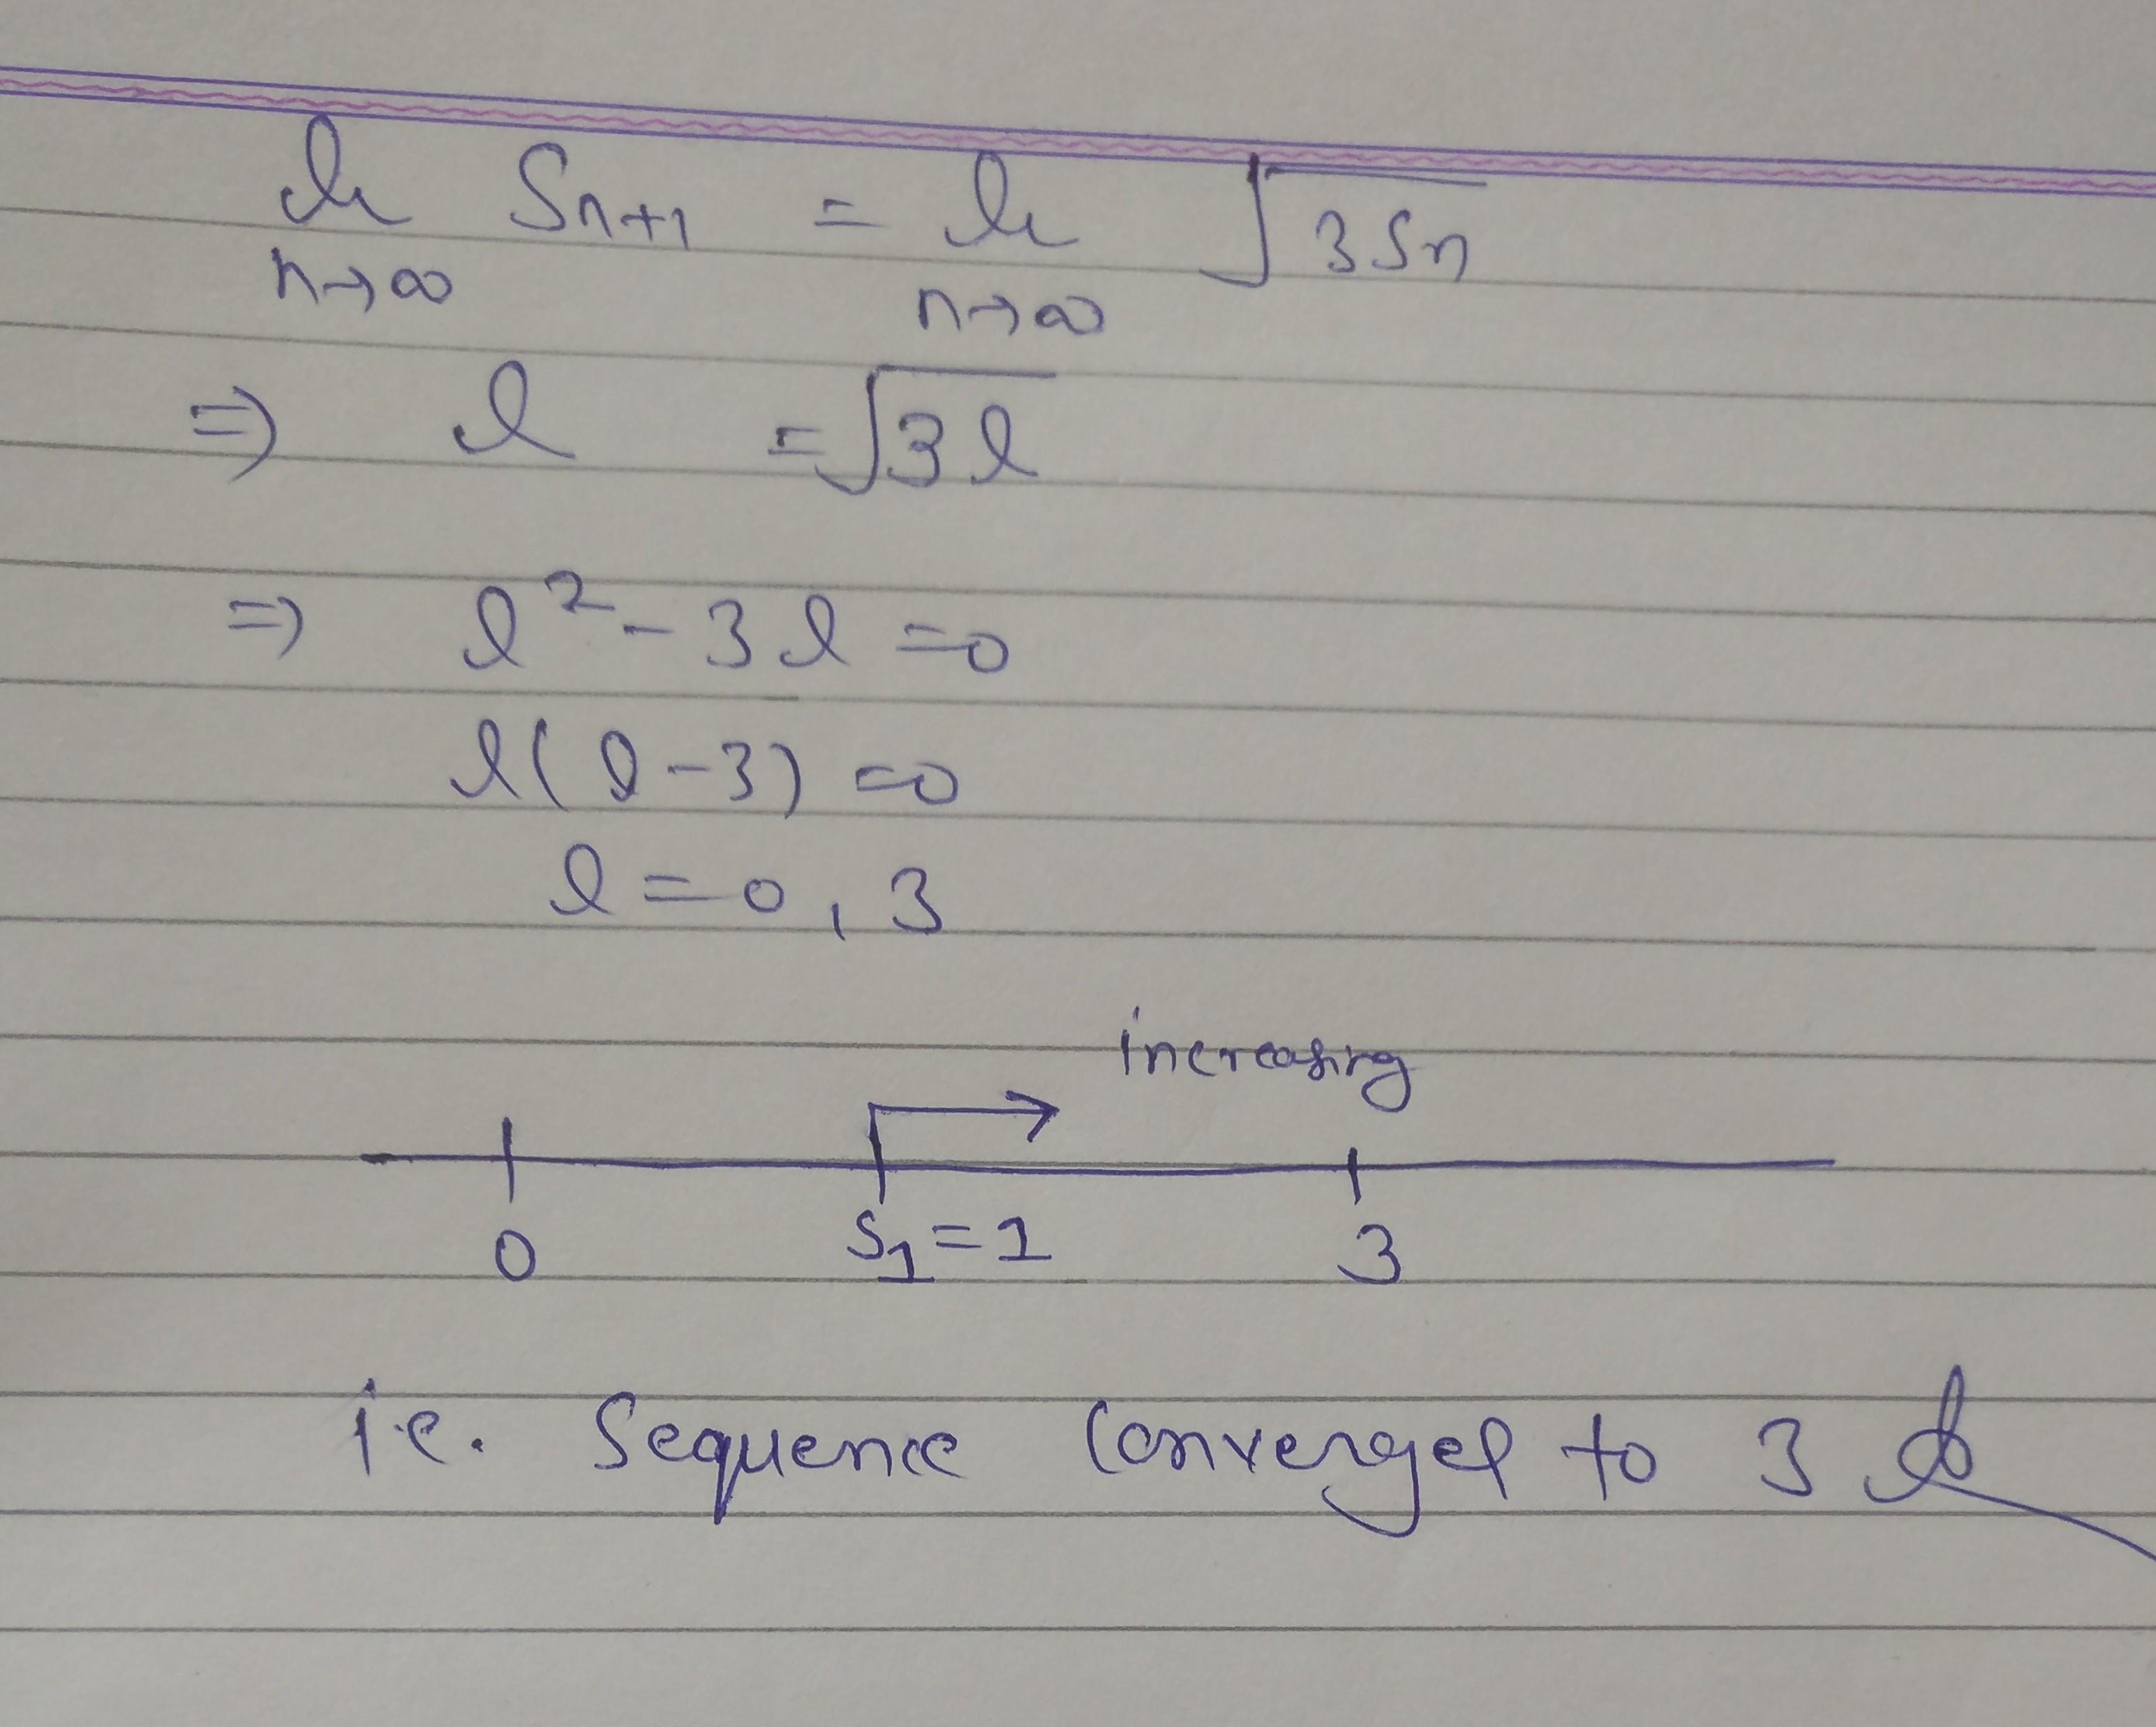 lim Sn+1 = lim √3Sn
n→∞ n→∞
⇒ l = √3l
⇒ l² - 3l = 0
l(l-3) = 0
l = 0, 3
increasing
0 S1 = 1 3
i.e. Sequence Converges to 3